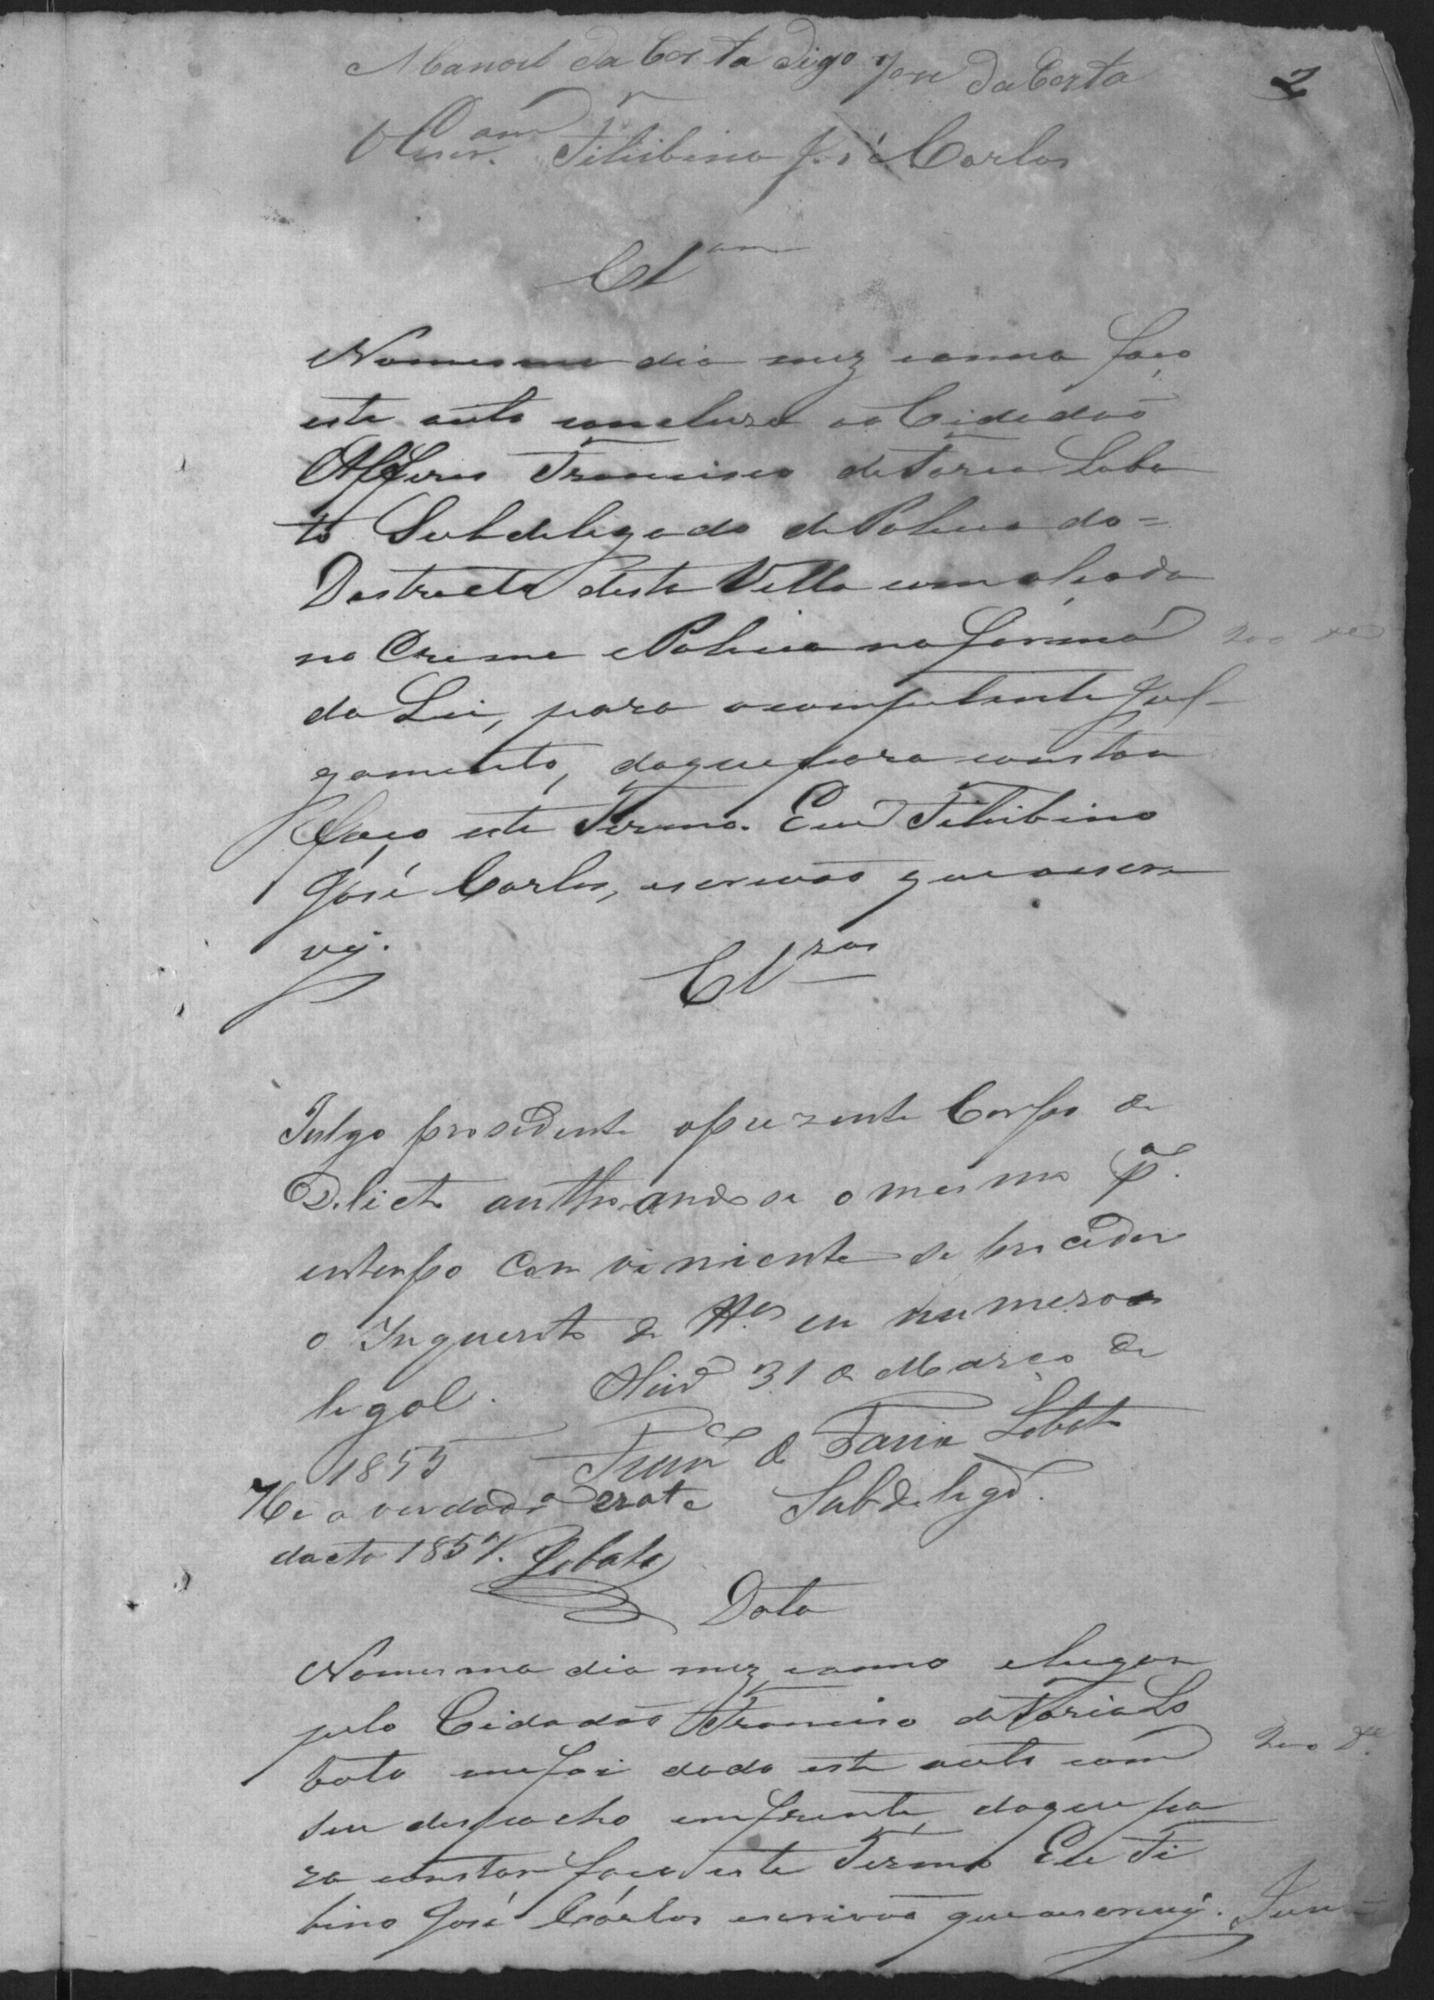 Manoel da Costa digo José da Costa
2
O Escr.am Filisbino José Carlos
Cl.am
No mesmo dia mez e anno faço
este auto concluso ao Cidadaõ
Alferes Francisco de Faria Loba
to Subdelegado de Polieia do=
Destricto desta Villa com alçada
no Crime e Policia na forma
da Lei, para o competente Jul-
gamento, do que para constar
faço este Termo. Eu Filisbino
José Carlos, escrivaõ que o escre
vy.
Cl.zos
Julgo prosedente o prezente Corpo de
Delicto authoandose o mesmo p.a
em tempo conviniente se proceder
o Inquerito de tt.as em numeros
legal. 31 de Março de
1855 Fran.co de Faria Lobato
Subdelegd.o
He a verdadr.a erata
dacto 1857. Lobato
Data
No mesmo dia mez e anno e lugar
pelo Cidadaõ Francisco de Faria Lo
bato me foi dado este auto com
seu despacho em frente, do que pa
ra constar faço este Termo Eu Fi
bino José Carlos escrivaõ que o escrevy. Jun=